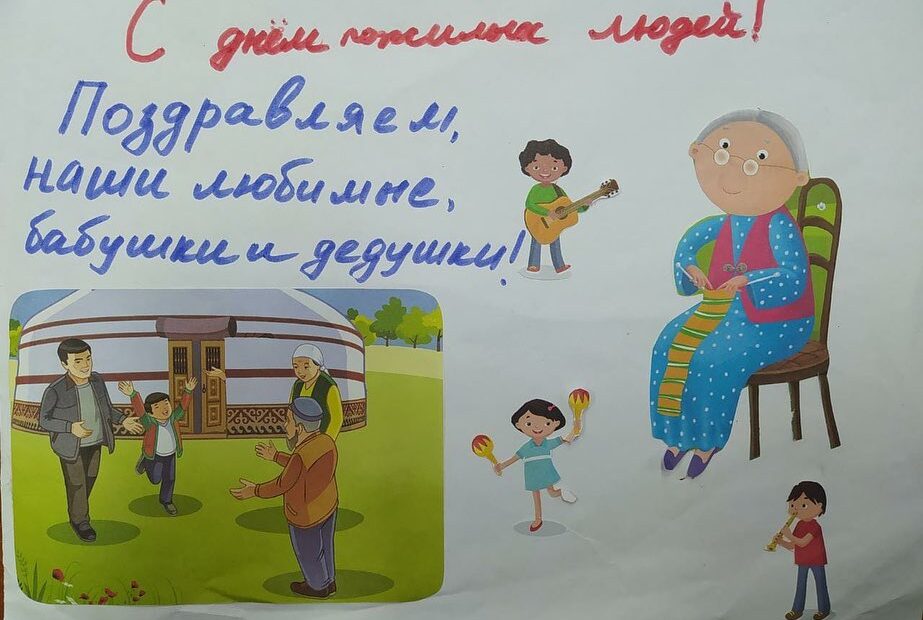 С днём пожилых людей!
Поздравляем,
наши любимые,
бабушки и дедушки!